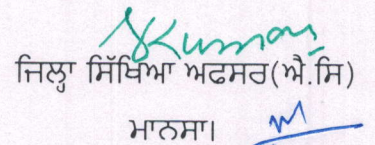 SKumar
ਜਿਲ੍ਹਾ ਸਿੱਖਿਆ ਅਫਸਰ(ਐ.ਸਿ)
ਮਾਨਸਾ।